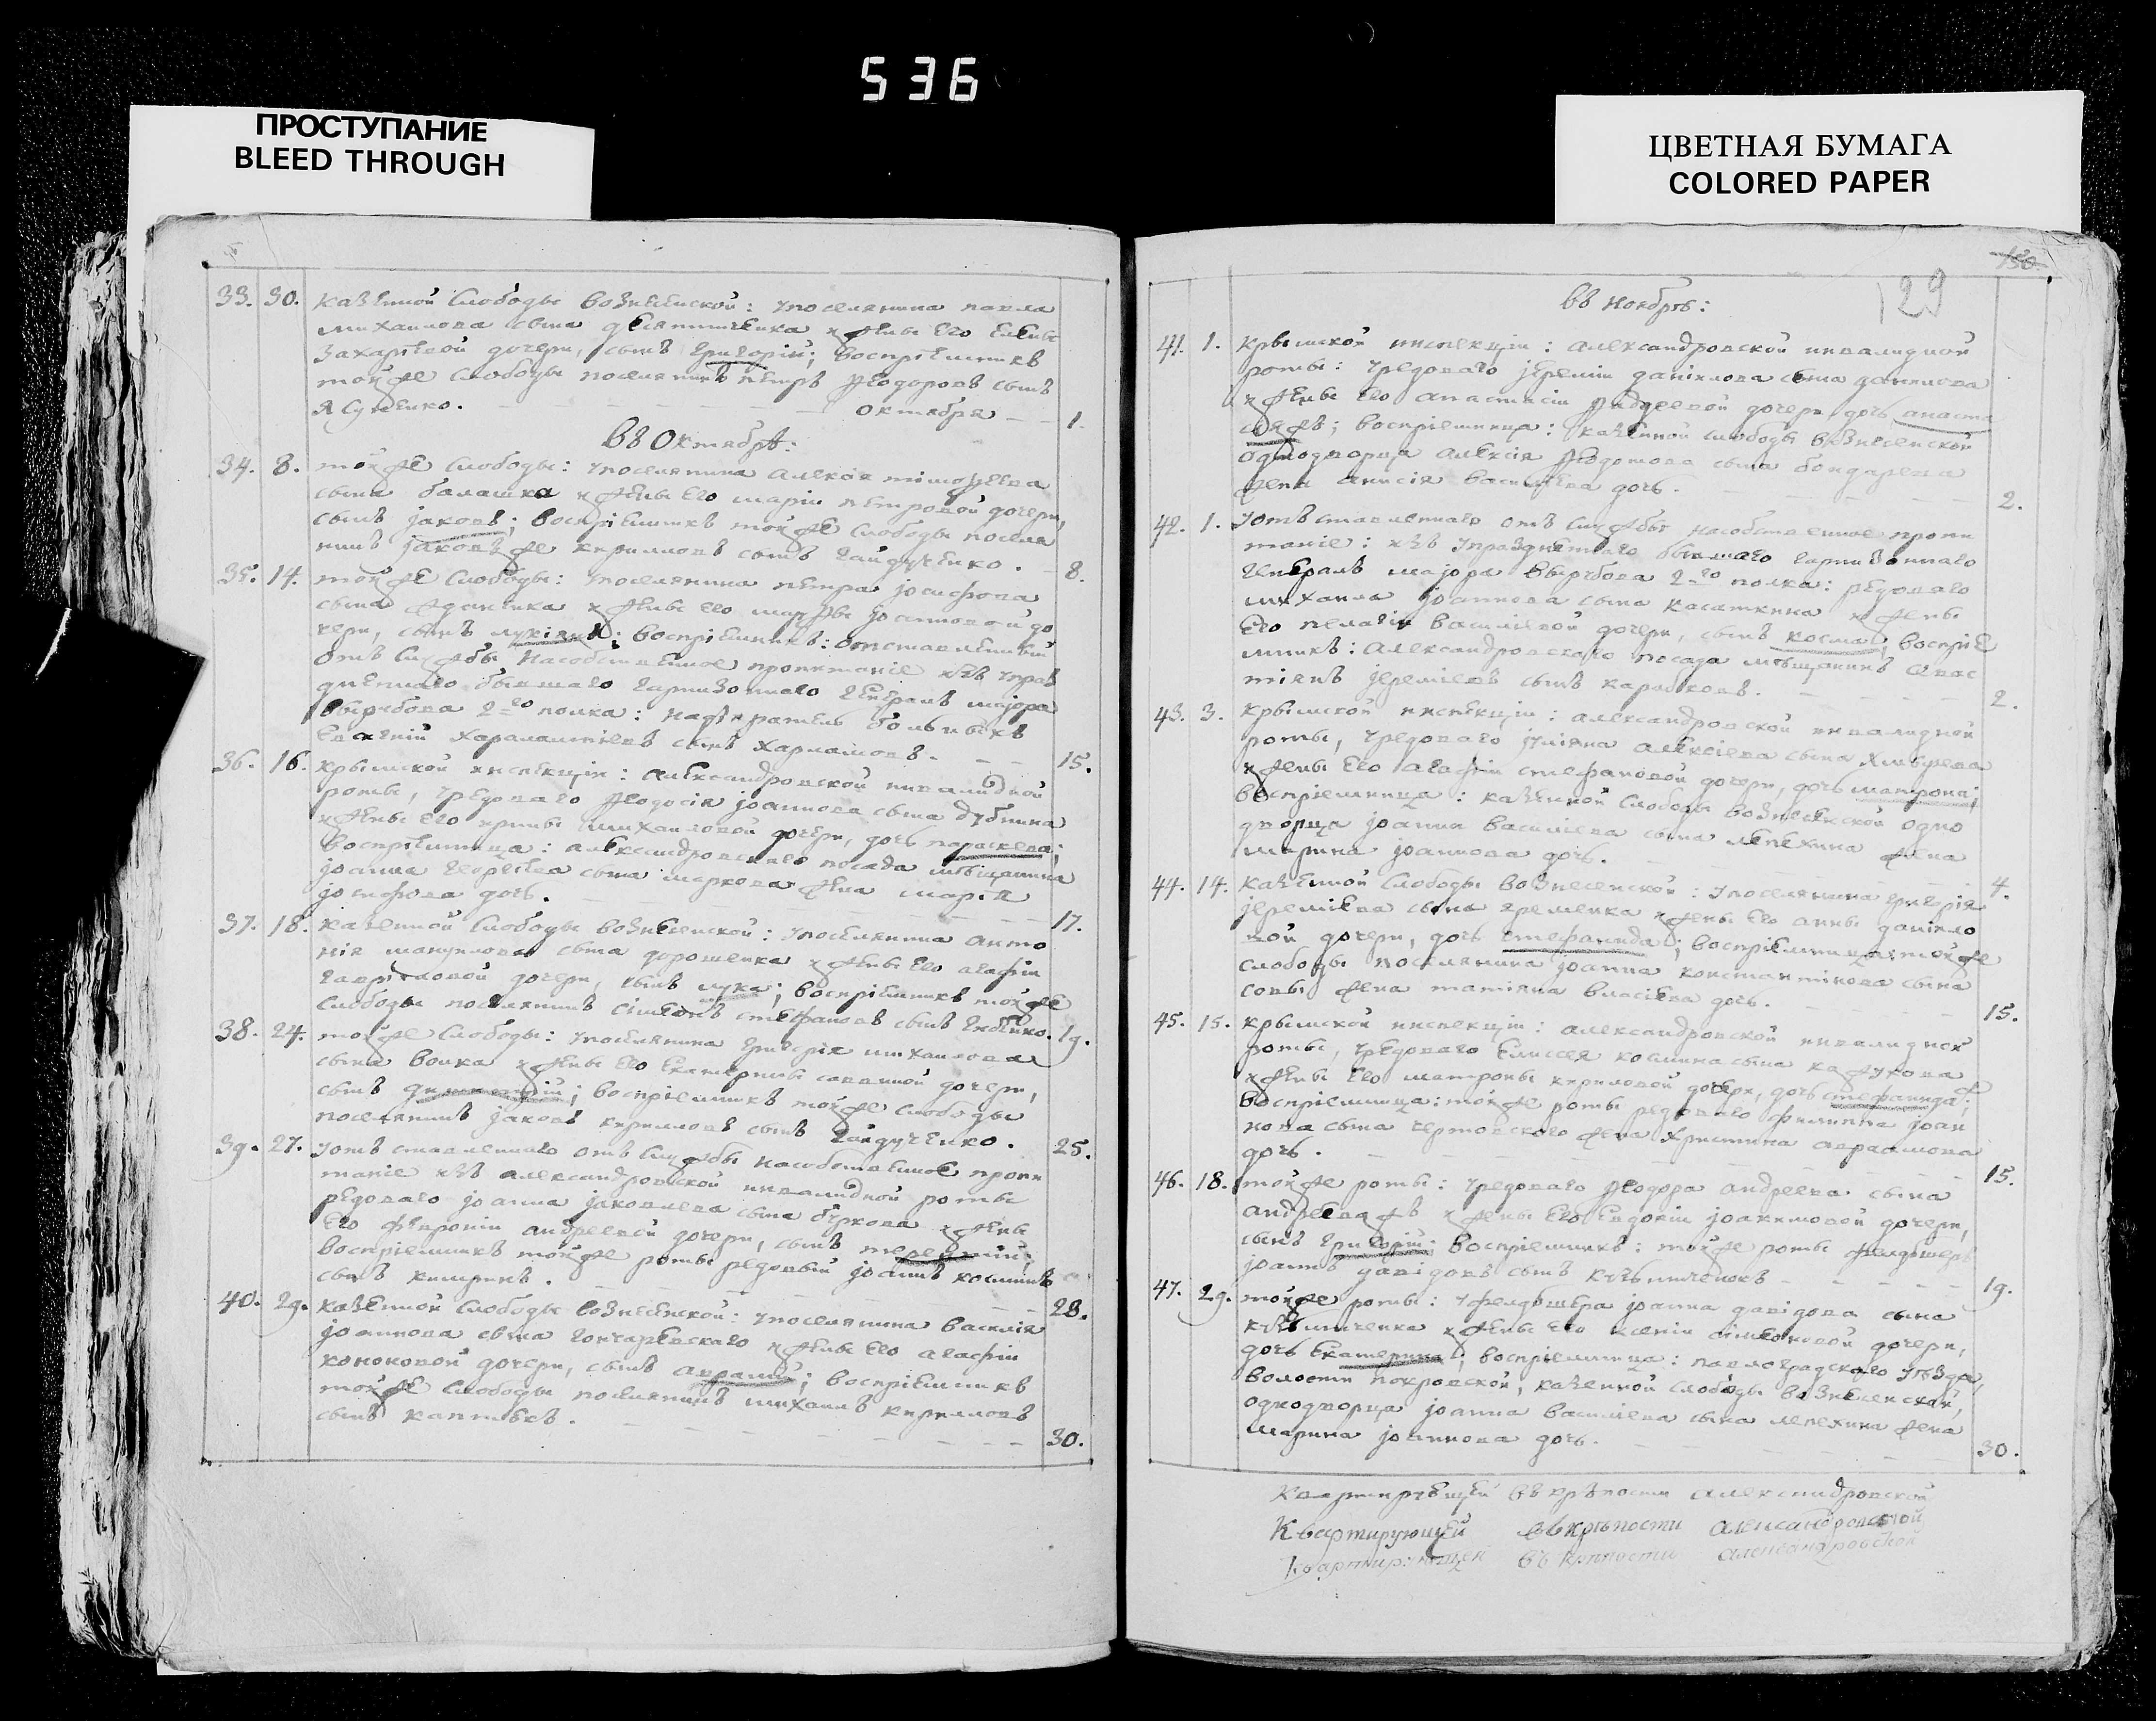 536
ПРОСТУПАНИЕ
BLEED THROUGH
ЦВЕТНАЯ БУМАГА
COLORED PAPER
33. 30. казенной слободы вознесенской: у поселянина павла
михаилова сына жены его елены
захарiевой дочери, сынъ григорiй; воспрiемникъ
тойже слободы поселянинъ петръ феодоровъ сынъ
ясуненко. октября 1.
въ октябрѣ:
34. 8. тойже слободы: у поселянина алексiя тiмофеева
сына балашка и жены его марiи петровой дочери,
сынъ iаковъ; воспрiемникъ тойже слободы поселя
нинъ iаковъ же кирилловъ сынъ гайдученко. 8.
35. 14. тойже слободы: у поселянина петра iосифова
сына и жены его марфы iоанновой до
чери, сынъ; воспрiемникъ: отставленный
отъ службы на собственное пропитанiе изъ упраз
дненнаго бывшаго гарнизоннаго генералъ маiора
вырубова 2-го полка: надзиратель больныхъ
евгенiй харалампiевъ сынъ харламовъ. 15.
36. 16. крымской инспекцiи: александровской инвалидной
роты, у редоваго феодосiя iоаннова сына дубинина
и жены его ирины михаиловой дочери, дочь параскева;
воспрiемница: александровскаго посада мѣщанина
iоанна георгiева сына маркова жена марiя
iосифова дочь. 17.
37. 18. казенной слободы вознесенской: у поселянина анто
нiя мануилова сына дорошенка и жены его агафiи
гаврiиловой дочери, сынъ лука; воспрiемникъ тойже
слободы поселянинъ сiмеонъ стефановъ сынъ 19.
38. 24. тойже слободы: у поселянина григорiя михаилова
сына волка и жены его екатерины саввиной дочери,
сынъ димитрiй; воспрiемникъ тойже слободы
поселянинъ iаковъ кирилловъ сынъ гайдученко. 25.
39. 27. у отъставленнаго отъ службы на собственное пропи
танiе изъ александровской инвалидной роты
редоваго iоанна iаковлева сына буркова и жены
его февронiи андреевой дочери, сынъ терентiй;
воспрiемникъ тойже роты редовый iоаннъ косминъ
сынъ киширинъ. 28.
40. 29. казенной слободы вознесенской: у поселянина василiя
iоаннова сына гончаревскаго и жены его агафiи
кононовой дочери, сынъ авраамъ; воспрiемникъ
тойже слободы поселянинъ михаилъ кирилловъ
сынъ 30.
150.
129
въ ноябрѣ:
41. 1. крымской инспекцiи: александровской инвалидной
роты: у редоваго iеремiи данiилова сына данилова
и жены его анастасiи андреевой дочери, дочь анаста
сiя; воспрiемница: казенной слободы вознесенской
однодворца алексiя феодотова сына бондарева
жена анисiя василiева дочь. 2.
42. 1. у отъставленнаго отъ службы на собственное пропи
танiе: изъ упраздненнаго бывшаго гарнизоннаго
генералъ маiора вырубова 2-го полка: редоваго
михаила iоаннова сына касаткина и жены
его пелагiи василiевой дочери, сынъ косма; воспрiе
мникъ: александровскаго посада мѣщанинъ севас
тiянъ iеремiевъ сынъ карабковъ. 2.
43. 3. крымской инспекцiи: александровской инвалидной
роты, у редоваго iулiяна алексiева сына
и жены его агафiи стефановой дочери, дочь матрона;
воспрiемница: казенной слободы вознесенской одно
дворца iоанна василiева сына лепехина жена
марина iоаннова дочь. 4.
44. 14. казенной слободы вознесенской: у поселянина григорiя
iеремiева сына еременка и жены его анны данiило
вой дочери, дочь стефанида; воспрiемница: тойже
слободы поселянина iоанна константiнова сына
совы жена татiяна власiева дочь. 15.
45. 15. крымской инспекцiи: александровской инвалидной
роты, у редоваго елиссея космина сына кажукова
и жены его матроны кириловой дочери, дочь стефанида;
воспрiемница: тойже роты редоваго филиппа iоан
нова сына чертовского жена христина авраамова
дочь. 15.
46. 18. тойже роты: у редоваго феодора андреева сына
андреева жъ и жены его евдокiи iоакимовой дочери,
сынъ григорiй; воспрiемникъ: тойже роты фелдшеръ
iоаннъ давiдовъ сынъ кузьмиченковъ 19.
47. 29. тойже роты: у фелдшера iоанна давiдова сына
кузьмиченка и жены его ксенiи сiмеоновой дочери,
дочь екатерина; воспрiемница: павлоградскаго уѣзда,
волости покровской, казенной слободы вознесенской,
однодворца iоанна василiева сына лепехина жена
марина iоаннова дочь. 30.
Квартирующей въ крѣпости александровской
Квартирующей въ крѣпости александровской
Квартирующей въ крѣпости александровской